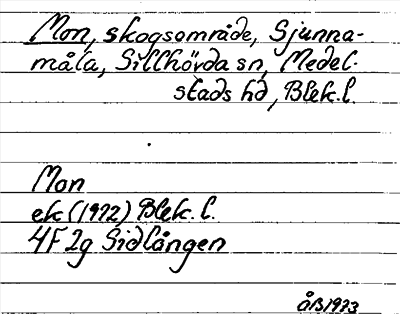 Mon, skogsområde, Sjunna-
måla, Sillhövda sn, Medel-
stads hd, Blek. l.
Mon
ek (1972) Blek. l.
4F 2g Sidlången
ÅB1973